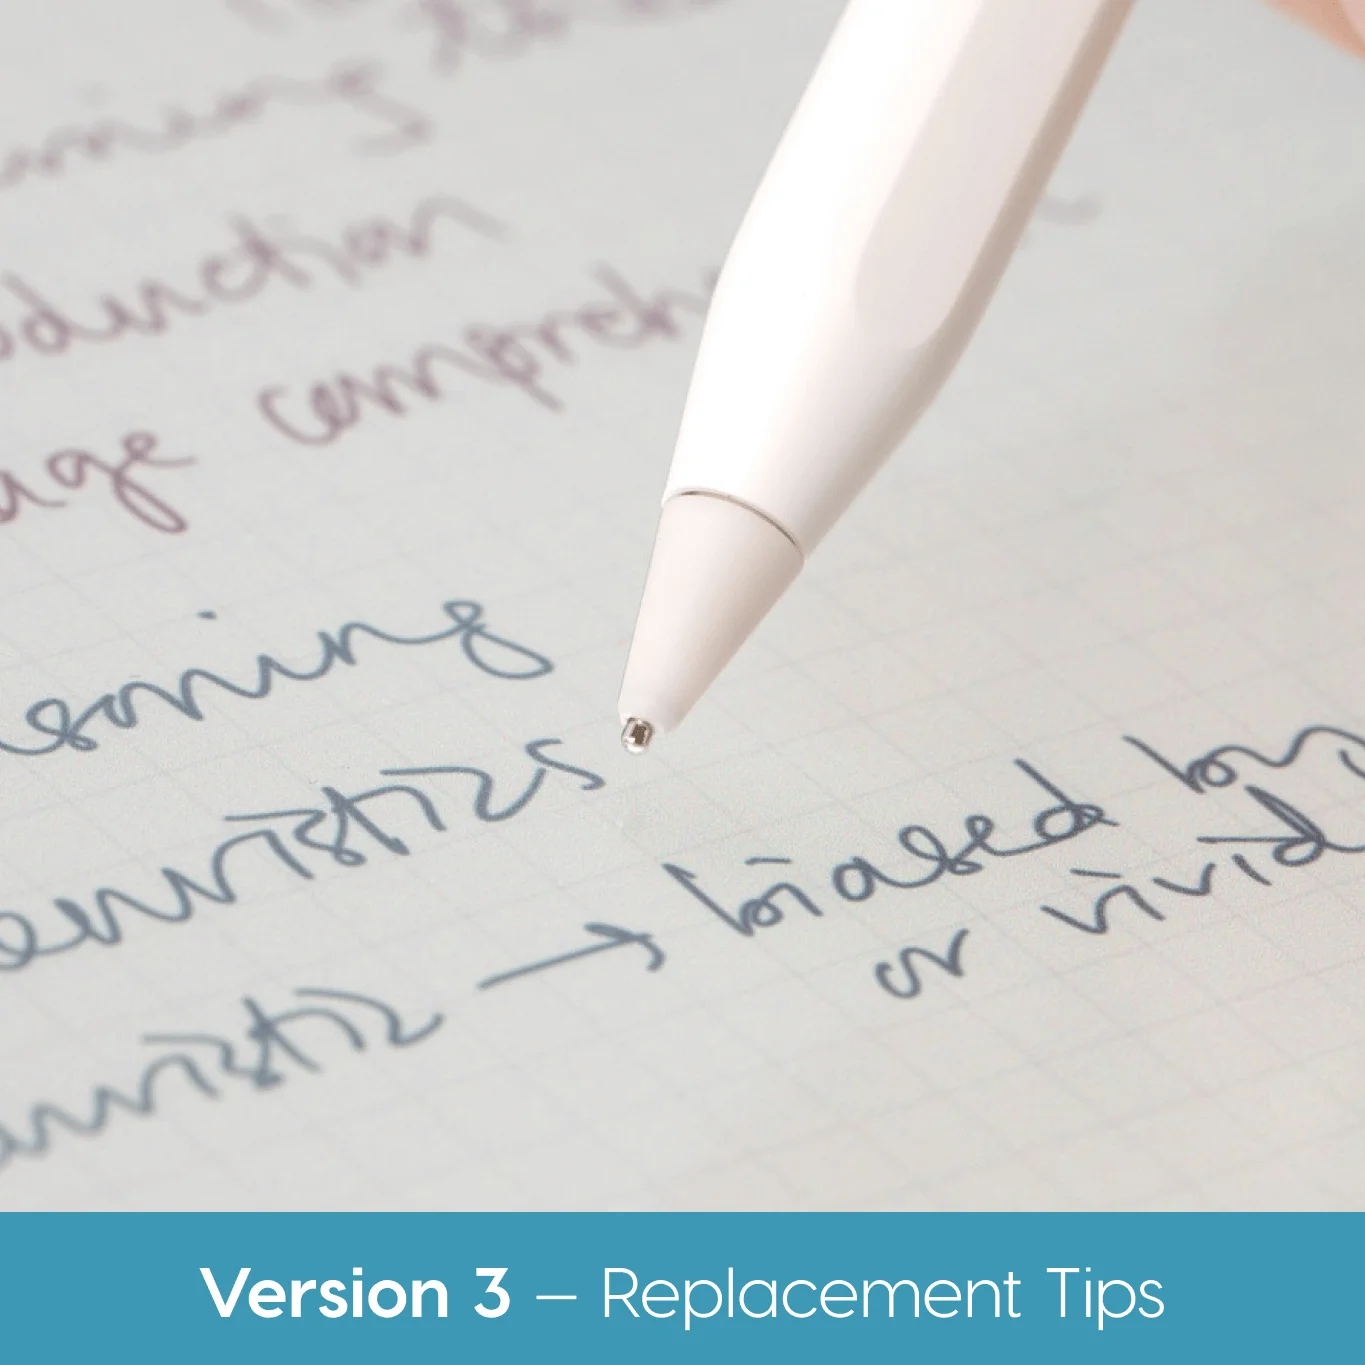 oduction
age compreh
soning
euristics
euristic → biased by
or vivid
Version 3 – Replacement Tips